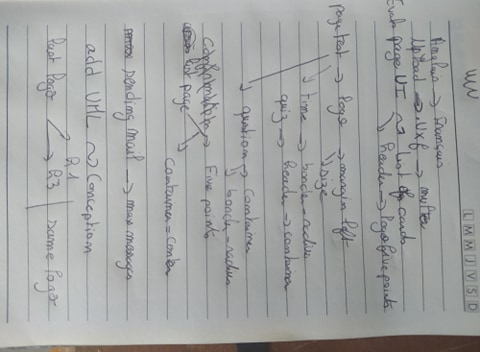 L M M J V S D
Anglais → Français
Upload → .vxf → multer
page UI → list of cards
header → logo five points
page test → logo → margin left
size
time → border-radius
quiz → header → container
question → container
border-radius
Five points
list page
container = center
sending mail → max messages
add UML ~> Conception
last logo
same logo